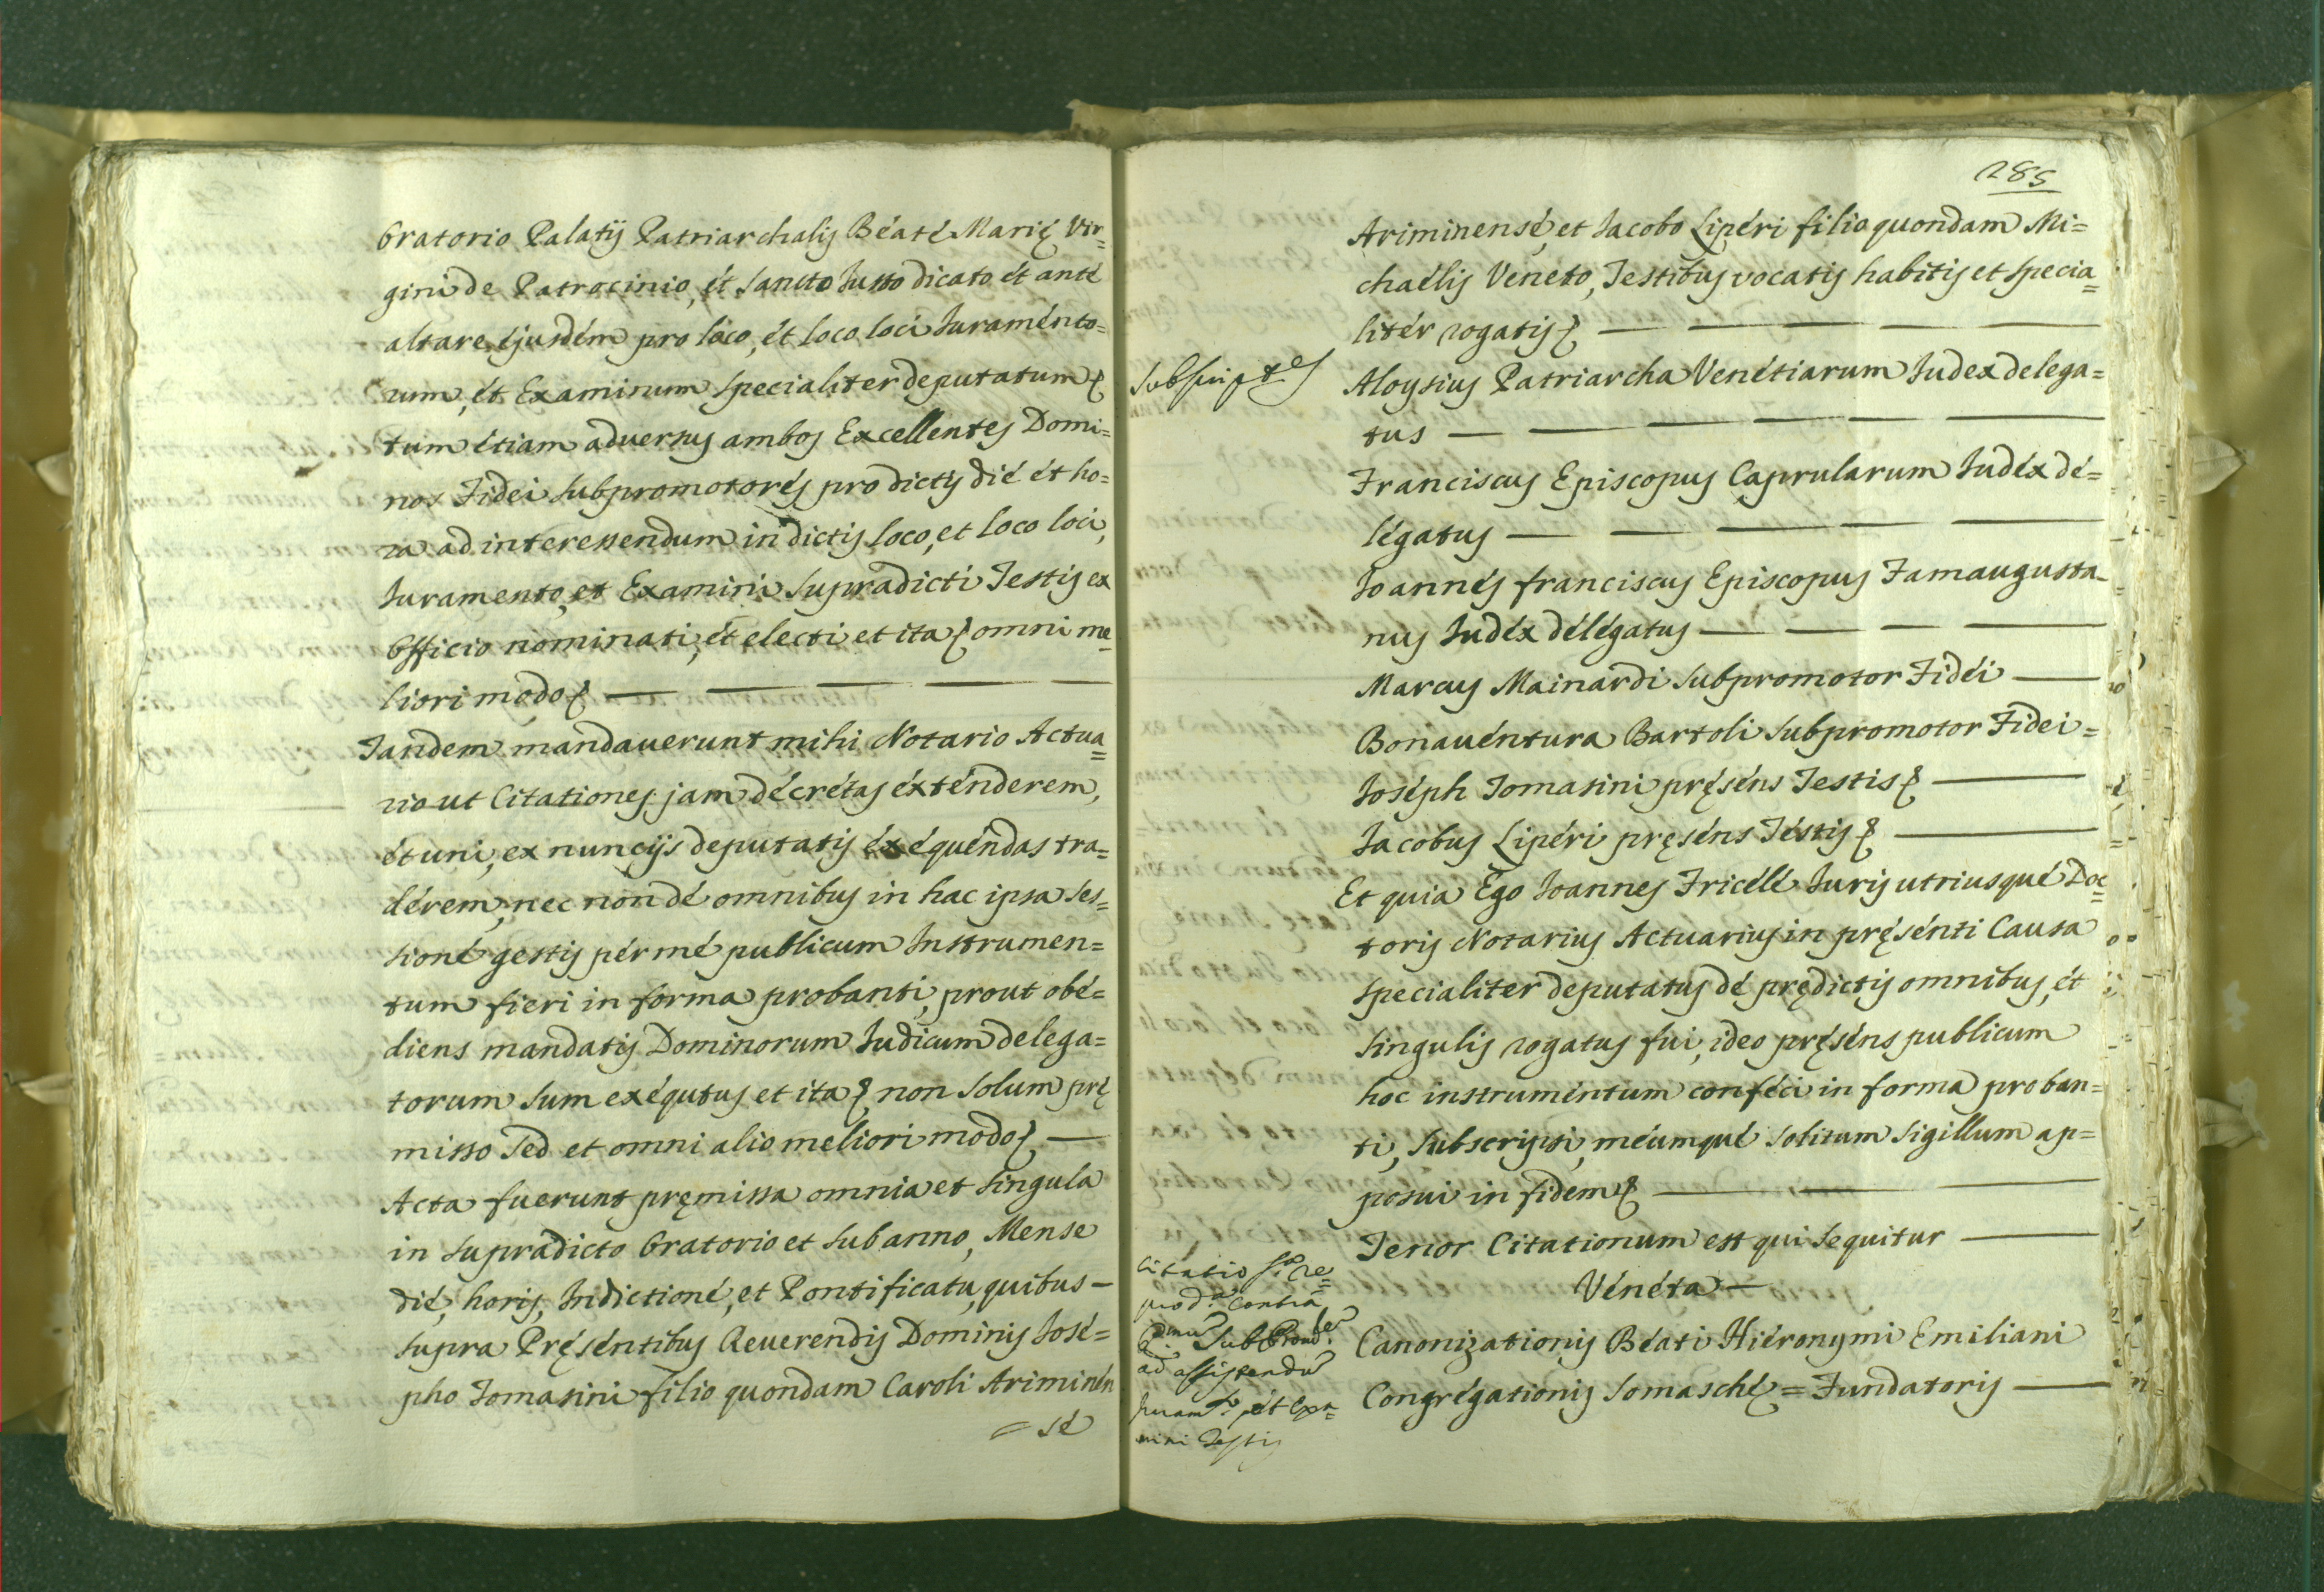 Oratorio Palatij Patriarchalis Béaté Marię Vir=
gini de Patrocinio, ét Sancto Iusto dicato ét anté
altare éjusdém pro loco, ét loco loci Juraménto=
rum, ét Examinum specialiter deputatum &
tum étiam aduersus ambos Excellentes Domi=
nos Fidei Subpromotorés pro dictis dié ét ho=
ra ad interessendum in dictis loco, et loco loci,
Juramento, et Examini supradicti Testis ex
Officio nominati, ét electi et ita & omni me=
liori modo &
Tandem mandauerunt mihi Notario Actua=
rio ut Citationes jam décrétas éxténderem,
ét uni, ex nuncijs deputatis éxéquéndas tra=
dérem, nec non dé omnibus in hac ipsa ses=
sioné gestis pér mé publicum Instrumen=
tum fieri in forma probanti, prout obé=
diens mandatis Dominorum Iudicum delega=
torum sum exéqutus et ita & non solum prę
misso sed et omni alio meliori modo &
Acta fuerunt pręmissa omnia et singula
in supradicto Oratorio et sub anno, Mense
dié, horis, Indictioné, et Pontificatu, quibus
supra Pręséntibus Reuerendis Dominis José=
pho Tomasini filio quondam Caroli Ariminén
= sé
285
Ariminensé, et Jacobo Lipéri filio quondam Mi=
chaélis Veneto, Testibus vocatis habitis et specia=
litér rogatis &
Subscriptes
Aloysius Patriarcha Venétiarum Iudex delega=
tus
Franciscus Episcopus Caprularum Iudéx dé=
légatus
Joannés franciscus Episcopus Famaugusta=
nus Iudéx délégatus
Marcus Mainardi Subpromotor Fidéi
Bonauéntura Bartoli Subpromotor Fidei =
Joséph Tomasini pręséns Testis &
Jacobus Lipéri pręséns Téstis &
Et quia Ego Joannes Fricélé Juris utriusqué Doc=
toris Notarius Actuarius in pręsénti Causa
specialiter deputatus dé prędictis omnibus, ét
singulis rogatus fui, ideo pręséns publicum
hoc instruméntum conféci in forma proban=
ti, subscripsi, méumqué solitum sigillum ap=
posui in fidem &
Tenor Citationum est qui sequitur
Vénéta
Citatio
contra
ad assistendu
Juramto, ét Exa=
mini Testis
Canonizationis Béati Hiéronymi Emiliani
Congrégationis Somaschę = Fundatoris